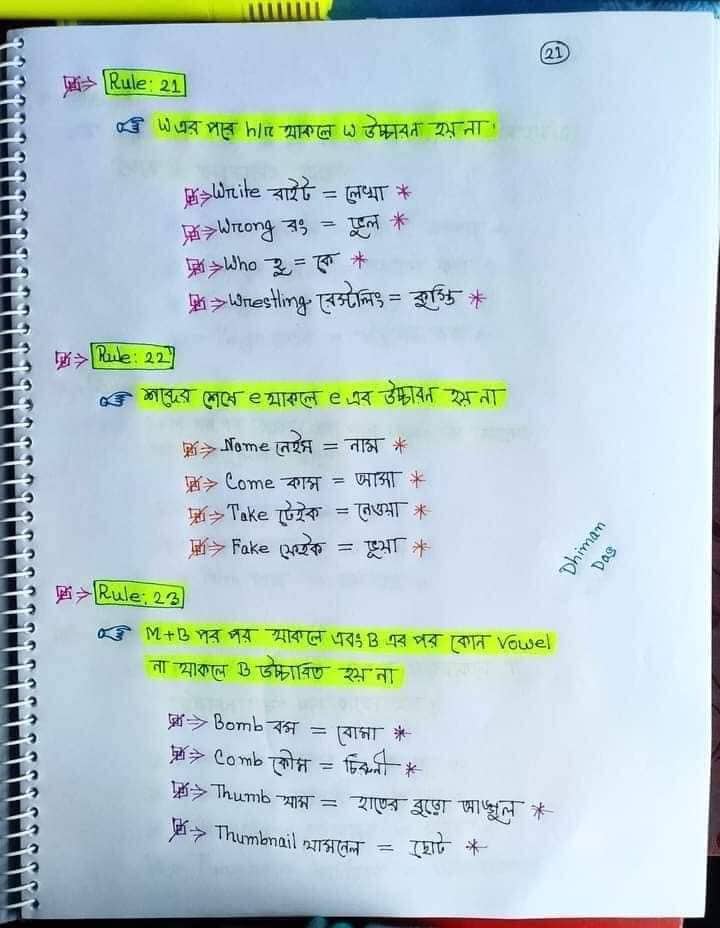 21
Rule: 21
W এর পরে h/r থাকলে W উচ্চারন হয় না।
Write রাইট = লেখা *
Wrong রং = ভুল *
Who হু = কে *
Wrestling রেস্টলিং = কুস্তি *
Rule: 22
শব্দের শেষে e থাকলে e এর উচ্চারন হয় না
Name নেইম = নাম *
Come কাম = আসা *
Take টেইক = নেওয়া *
Fake ফেইক = ভূয়া *
Dhiman
Das
Rule: 23
M+B পর পর থাকলে এবং B এর পর কোন Vowel
না থাকলে B উচ্চারিত হয় না
Bomb বম = বোমা *
Comb কৌম = চিরুনী *
Thumb থাম = হাতের বুড়ো আঙ্গুল *
Thumbnail থামনেল = ছোট *